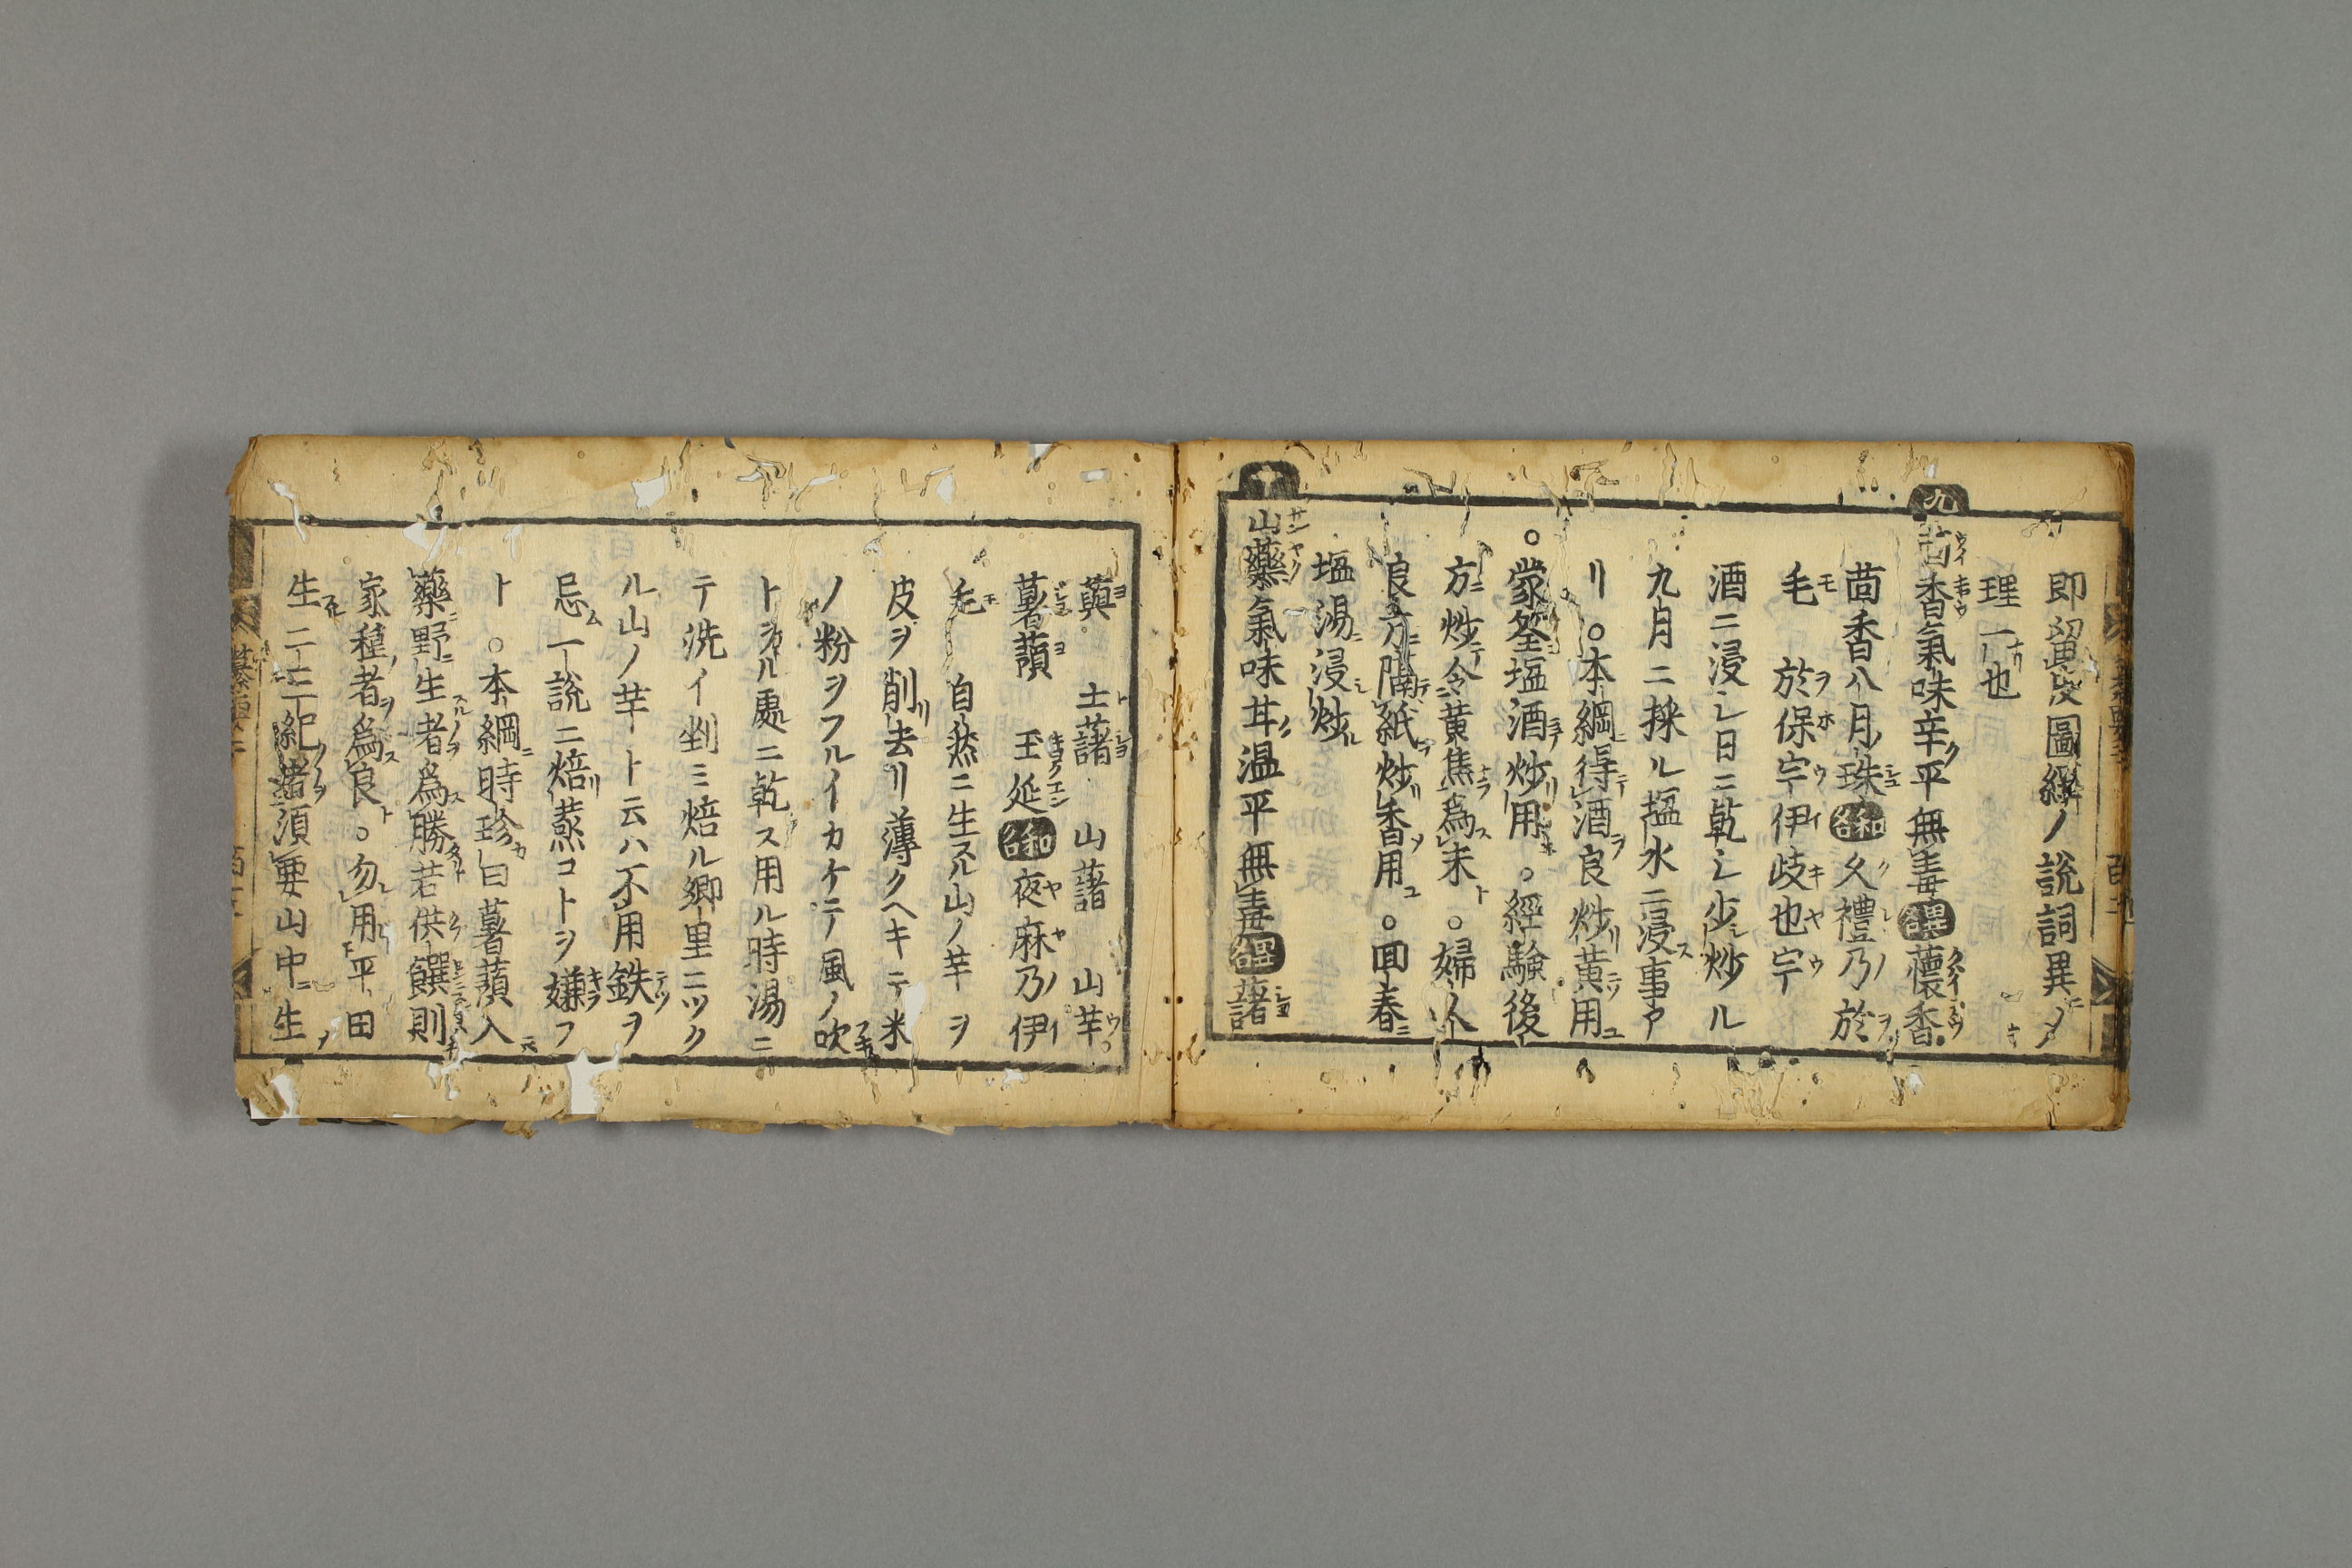 即 圖 ノ說詞異ノ
理一也
九
茴香氣味辛平無毒 異名 蘹香
茴香八月珠 和名 久禮乃於
毛 於保宇伊岐也宇
酒ニ浸シ日ニ乾シ少炒ル
九月ニ採ル塩水ニ浸ス事ア
リ○本綱得酒良炒黄用
○蒙筌塩酒炒用○經驗後
方炒令黄焦爲末○婦人
良方隔紙炒香用○回春
塩湯浸炒
十
山藥氣味甘温平無毒 異名 藷
藇 土藷 山藷 山芋
薯蕷 玉延 和名 夜麻乃伊
毛 自然ニ生スル山ノ芋ヲ
皮ヲ削去リ薄クヘキテ米
ノ粉ヲフルイカケテ風ノ吹
トヲル處ニ乾ス用ル時湯ニ
テ洗イ剉ミ焙ル郷里ニツク
ル山ノ芋ト云ハ不用鉄ヲ
忌一說ニ焙蒸コトヲ嫌フ
ト○本綱時珍曰薯蕷入
藥野生者爲勝若供饌則
家種者爲良○勿用平田
生二三紀 須要山中生